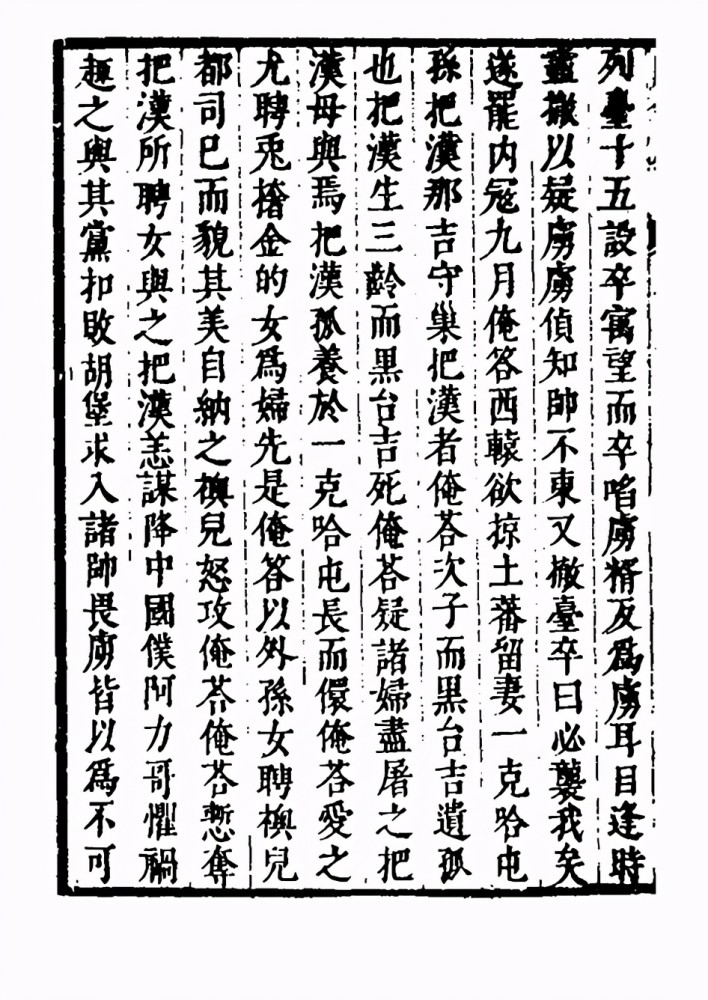 列臺十五設卒寓望而卒啗虜糈反爲虜耳目逢時
盡撤以疑虜虜偵知帥不東又撤臺卒曰必襲我矣
遂罷内冦九月俺答西轅欲掠土蕃留妻一克哈屯
孫把漢那吉守巢把漢者俺荅次子而黒台吉遺孤
也把漢生三齡而黒台吉死俺荅疑諸婦盡屠之把
漢母與焉把漢孤養於一克哈屯長而儇俺荅愛之
尤聘兎撦金的女爲婦先是俺答以外孫女聘襖兒
都司巳而貌其美自納之襖兒怒攻俺荅俺荅慙奪
把漢所聘女與之把漢恙謀降中國僕阿力哥懼禍
趣之與其黨扣敗胡堡求入諸帥畏虜皆以爲不可